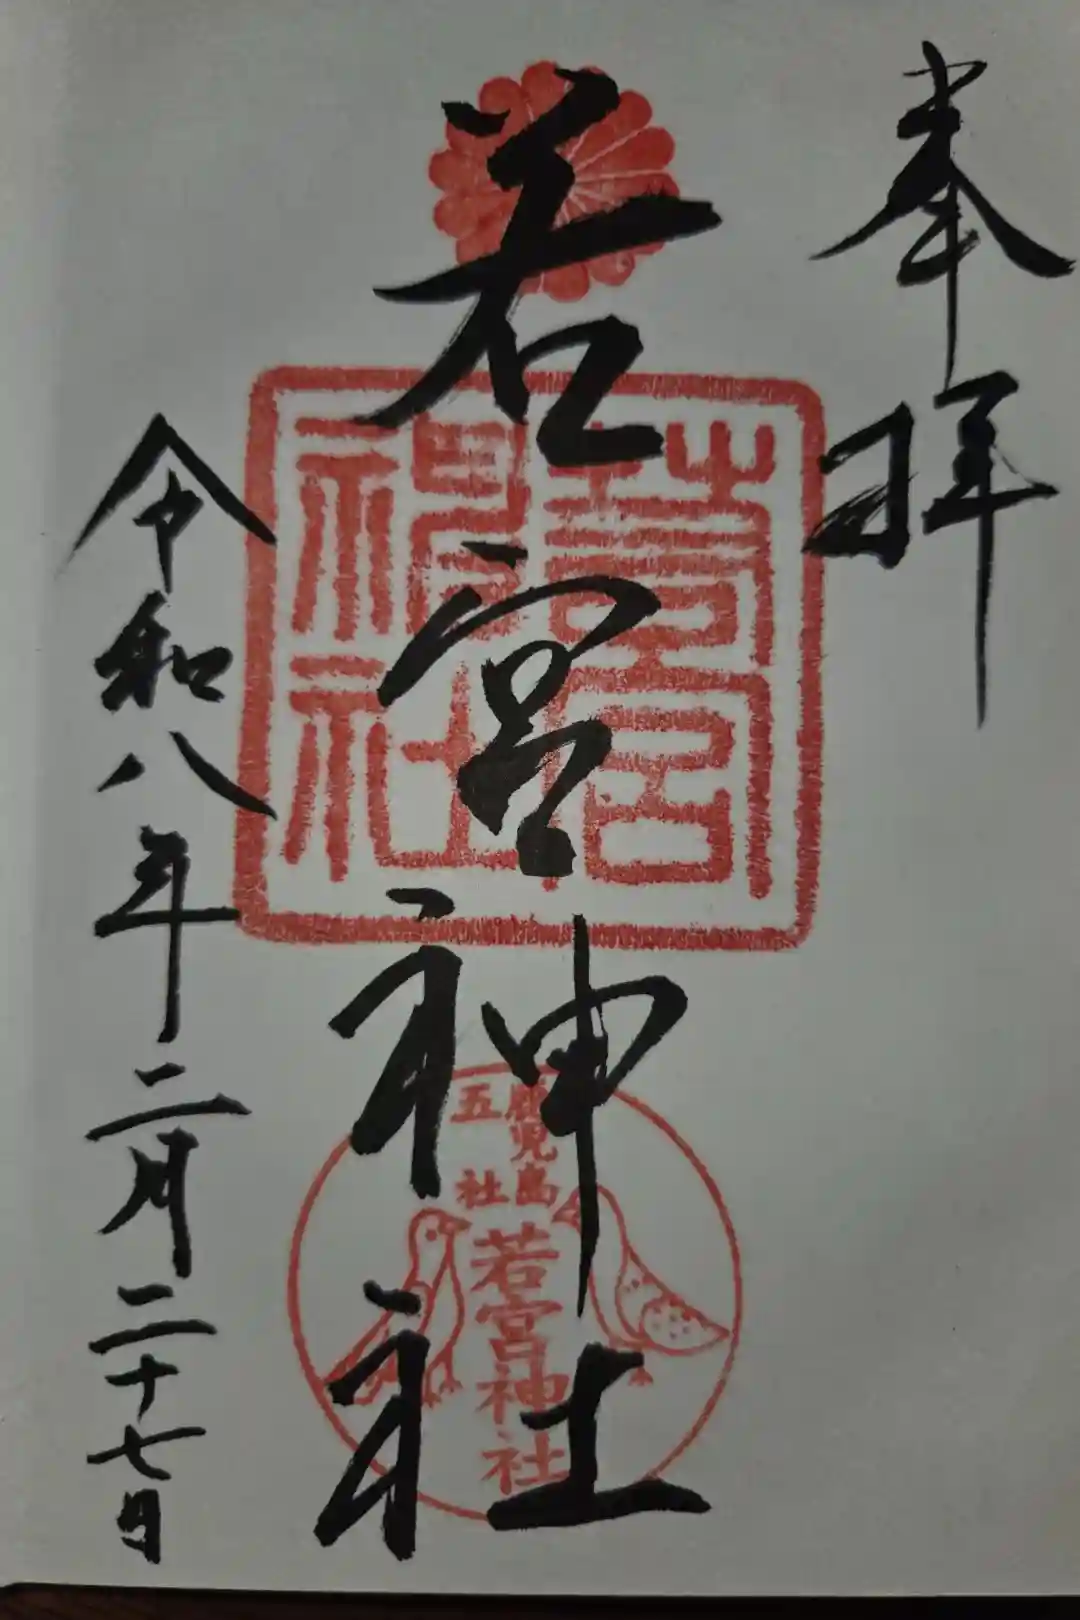 奉拝
若宮神社
若宮
神社
鹿児島
五社
若宮神社
令和八年二月二十七日